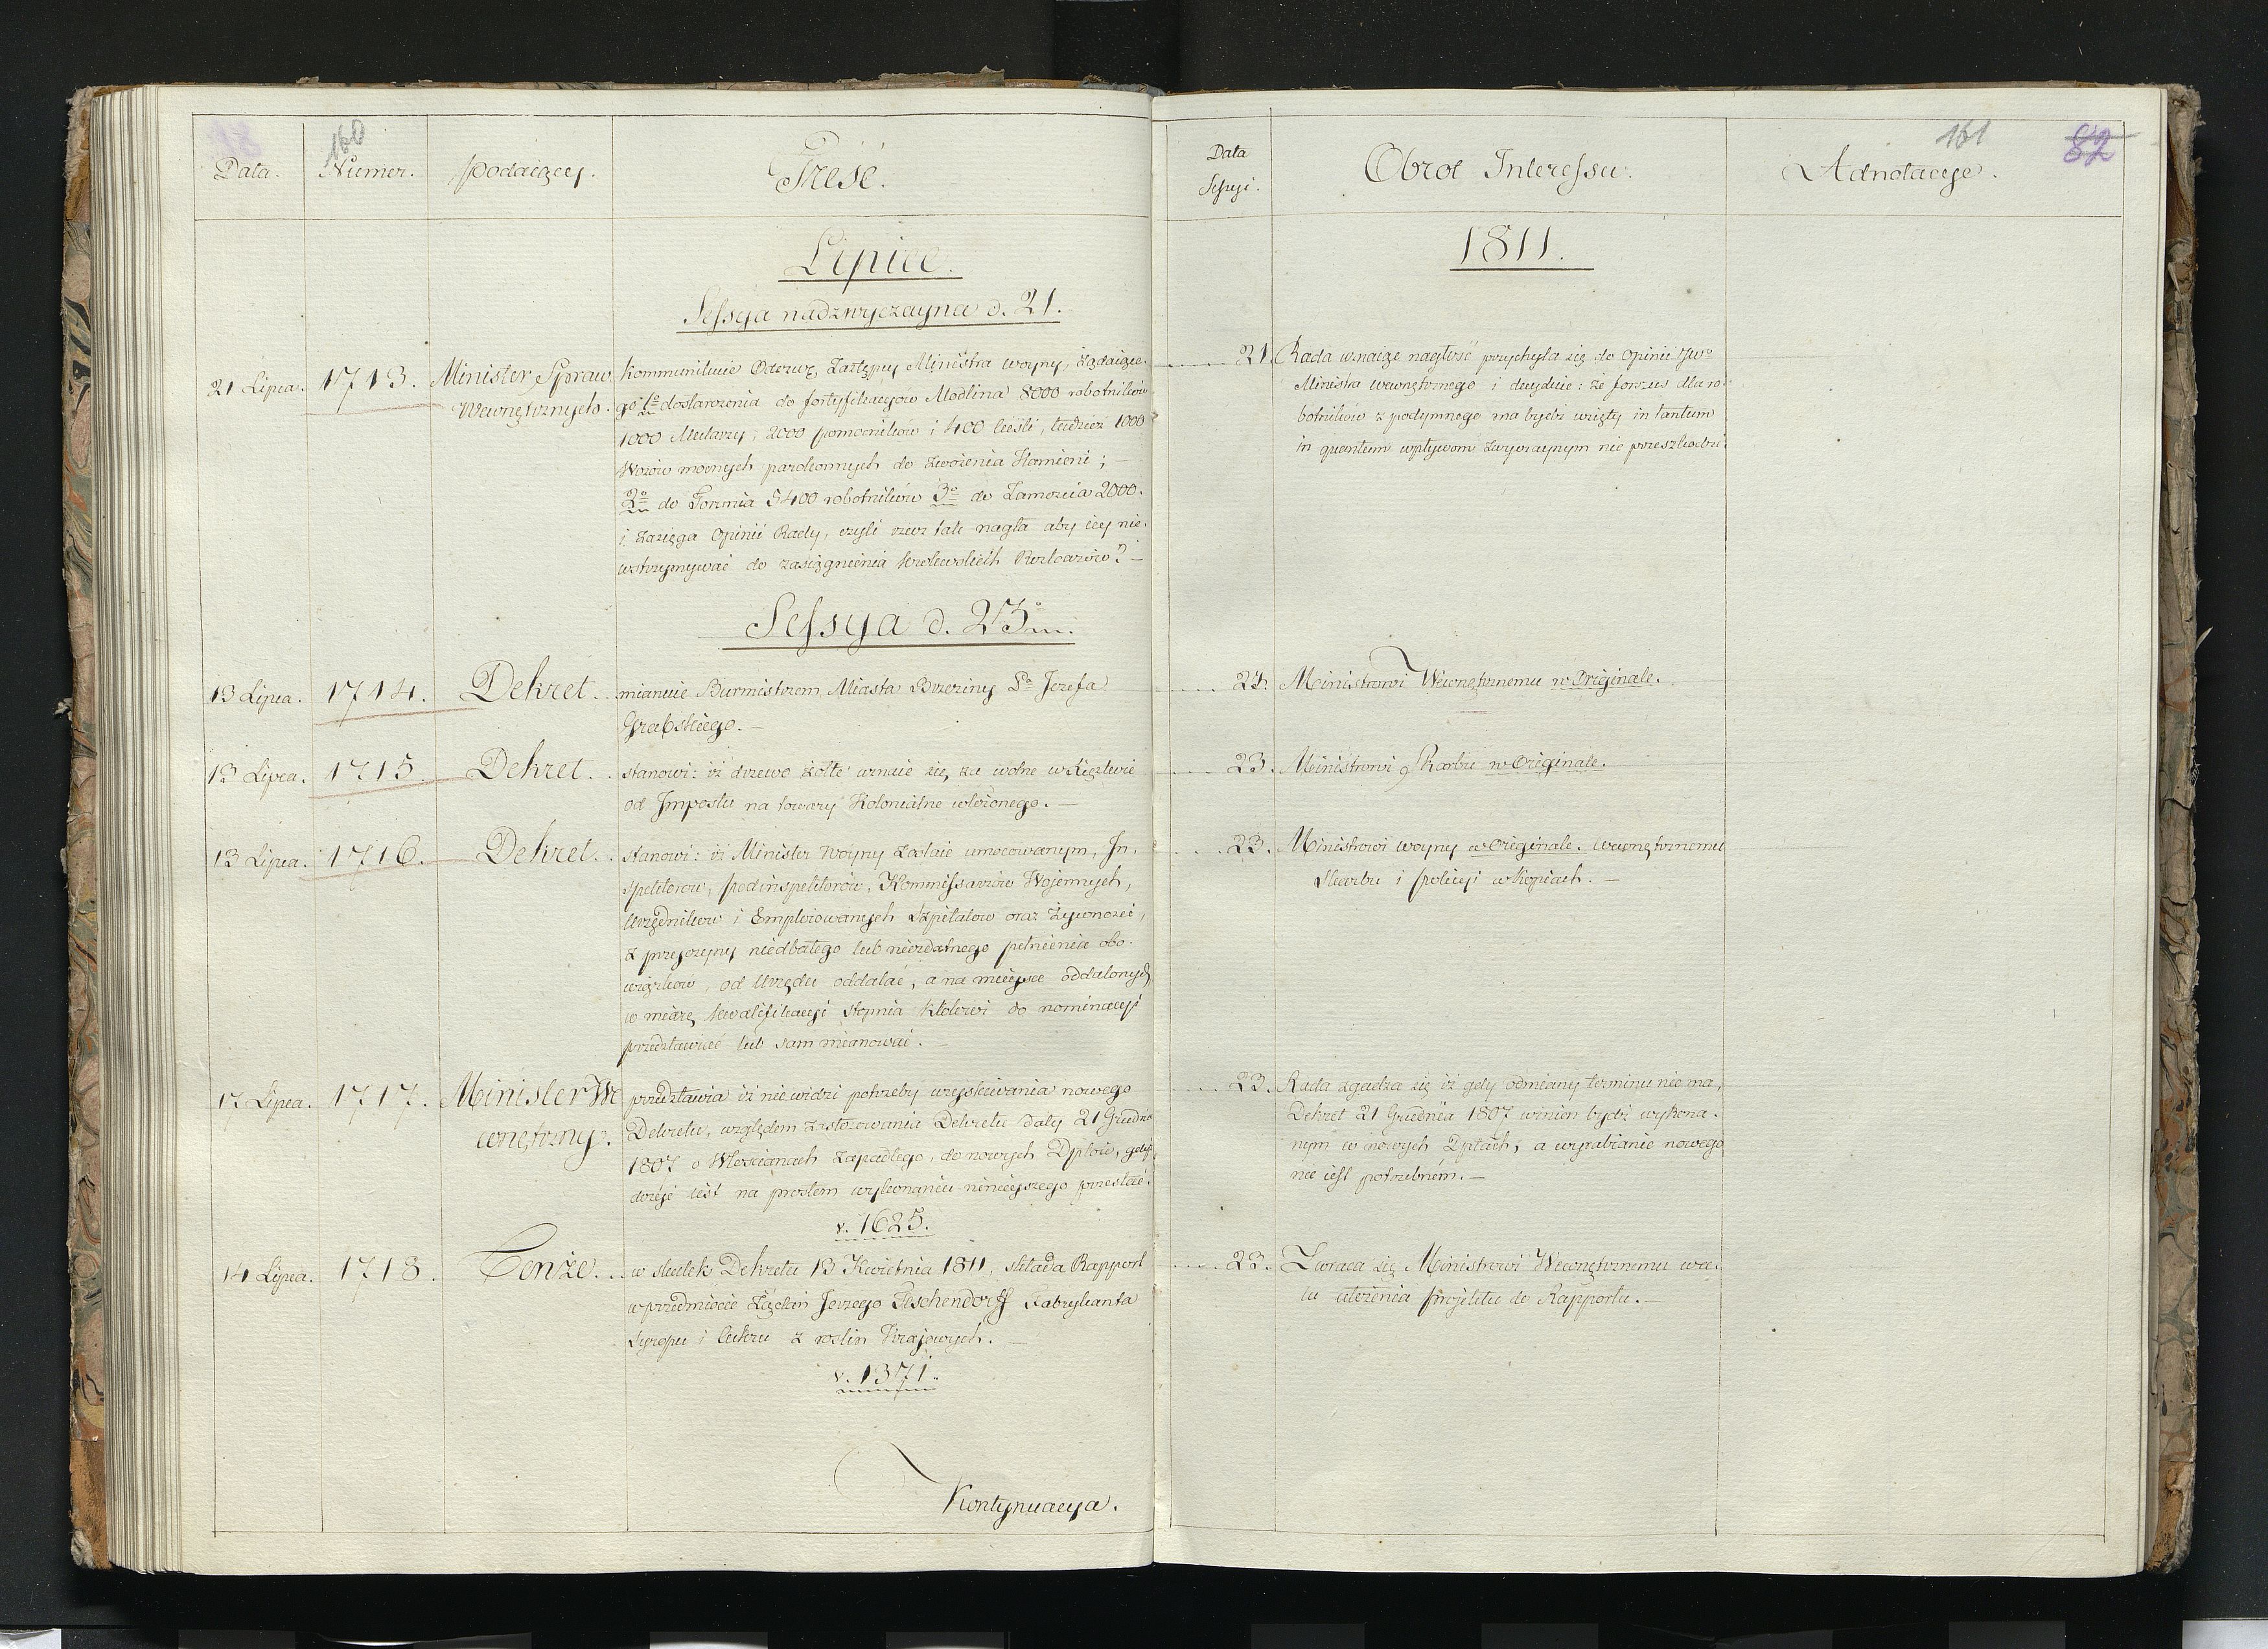 160
Data.
Numer.
Podaiący.
Treść.
Lipiec.
Sessya nadzwyczayna d. 21.
21 Lipca. 1713. Minister Spraw
Wewnętrznych.
Kommunikuie Odezwę, Zastępcy Ministra woyny, żądaiące-
go 1o dostarczenia do fortyfikacyow Modlina 8000 robotników
1000 Mularzy, 2000 pomocników i 400 Cieśli, tudzież 1000
Wozów mocnych parokonnych do zwożenia Kamieni; –
2o do Torunia 5400 robotników 3o do Zamościa 2000.
i zasięga Opinii Rady, czyli rzecz tak nagła aby iey nie-
wstrzymywać do zasiągnienia Krolewskich Rozkazów? –
Sessya d. 23o
13 Lipca. 1714. Dekret.
mianuie Burmistrzem Miasta Brzeziny Pa Jozefa
Grabskiego. –
13 Lipca. 1715. Dekret.
stanowi: iż drzewo żołte uznaie się, za wolne w Xięztwie
od Impostu na towary Kolonialne włożonego. –
13 Lipca. 1716. Dekret.
stanowi: iż Minister Woyny zostaie umocowanym, In-
spektorow, podinspektorów, Kommissarzów Wojennych,
Urzędników i Emploiowanych Szpitalow oraz Żywności,
z przyczyny niedbałego lub niezdatnego pełnienia obo-
wiązków, od Urzędu oddalać, a na mieysce oddalonych
w miarę kwalifikacyi stopnia Królowi do nominacyi
przedstawiać lub sam mianować. –
17 Lipca. 1717. Minister We
wnętrzny.
przedstawia iż nie widzi potrzeby uzyskiwania nowego
Dekretu, względem zastosowania Dekretu daty 21 Grudnia
1807 o Włościanach zapadłego, do nowych Dptów, gdyż
dosyć iest na prostem wykonaniu ninieyszego przestać.
v. 1625.
14 Lipca. 1718. Tenże.
w skutek Dekretu 13 Kwietnia 1811, składa Rapport
w przedmiocie Żądań Jerzego Teschendorff Fabrykanta
Syropu i Cukru z roslin Krajowych. –
v. 1371.
Kontynuacya.
161
82
Data
Sessyi.
Obrot Interessu.
Adnotacye.
1811.
21. Rada uznaiąc nagłość przychyla się do Opinii JWo
Ministra wewnętrznego i decyduie: że forszus dla ro-
botników z podymnego ma bydź wzięty in tantum
in quantum wpływom zwyczaynym nie przeszkodzi
24. Ministrowi Wewnętrznemu w Originale.
23. Ministrowi Skarbu w Originale.
23. Ministrowi woyny w Originale. Wewnętrznemu
Skarbu i policyi w kopiach. –
23. Rada zgadza się iż gdy odmiany terminu nie ma,
Dekret 21 Grudnia 1807 winien bydź wykona-
nym w nowych Dptach, a wyrabianie nowego
nie iest potrzebném. –
23. Zwraca się Ministrowi Wewnętrznemu wce-
lu ułożenia projektu do Rapportu. –